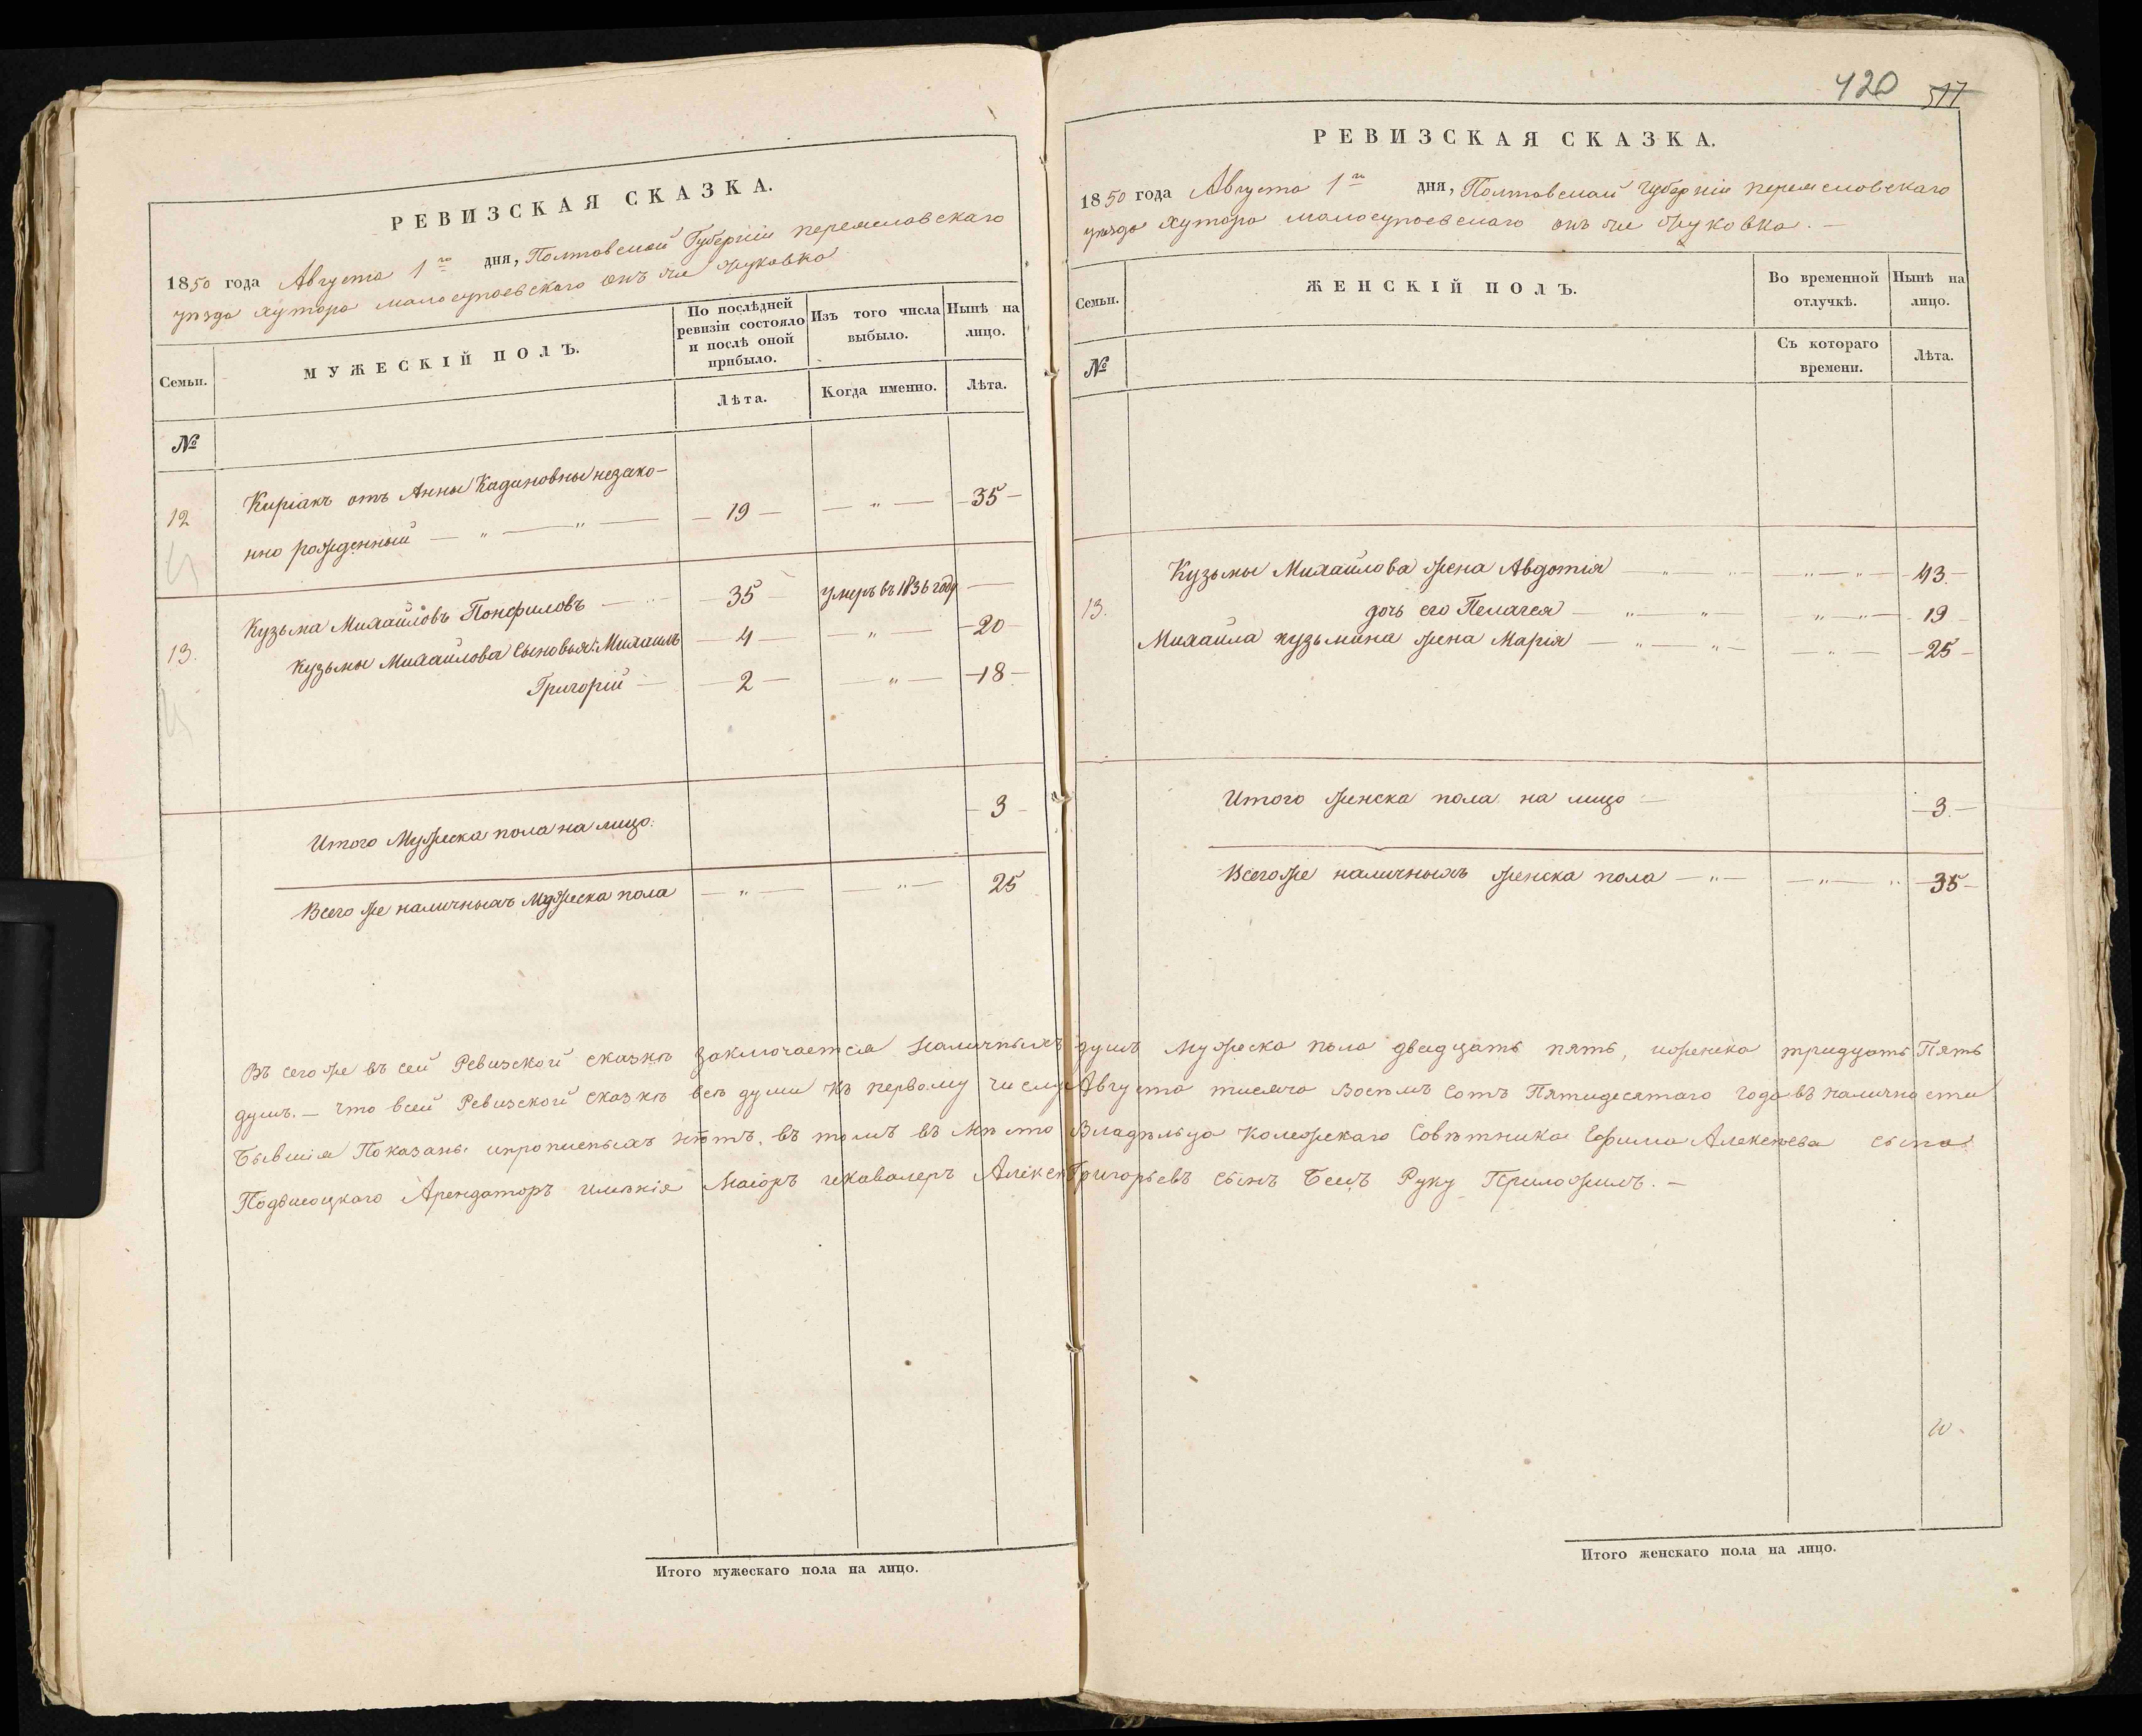 РЕВИЗСКАЯ СКАЗКА.
1850 года Августа 1го дня, Полтавской Губерніи переяславскаго
уѣзда хутора малосупоевскаго онъ же Жуковка
Семьи.
МУЖЕСКІЙ ПОЛЪ.
По послѣдней ревизіи состояло и послѣ оной прибыло.
Изъ того числа выбыло.
Нынѣ на лицо.
Лѣта.
Когда именно.
Лѣта.
№
12 Киріакъ отъ Анны Кадиновны незако-
нно рожденный — „ — „ — 19 — — „ — — 35 —
13. Кузьма Михайловъ Понфиловъ — 35 — умеръ въ 1836 году —
Кузьмы Михайлова Сыновья: Михаилъ — 4 — — „ — — 20 —
Григорій — — 2 — — „ — — 18 —
Итого Мужеска пола на лицо: — 3 —
Всего же наличныхъ Мужеска пола — „ — — „ — 25
420 517
РЕВИЗСКАЯ СКАЗКА.
1850 года Августа 1го дня, Полтавской губерніи переяславскаго
уѣзда хутора малосупоевскаго онъ же Жуковка. —
Семьи.
ЖЕНСКІЙ ПОЛЪ.
Во временной отлучкѣ.
Нынѣ на лицо.
№
Съ котораго времени.
Лѣта.
13. Кузьмы Михайлова жена Авдотія — „ — „ — 43 —
дочь его Пелагея — „ — „ — 19 —
Михайла кузьмина жена Марія — „ — „ — — 25 —
Итого женска пола на лицо — — 3 —
Всего же наличныхъ женска пола — „ — — „ — — 35 —
Въ сего же въ сей Ревизской сказкѣ заключается наличныхъ душъ мужеска пола двадцать пять, иженска тридцать Пять
душъ. — Что всей Ревизской сказкѣ всѣ души къ первому числу Августа тисяча Восѣмъ Сотъ Пятидесятаго года въ наличности
Бывшія Показаны ипрописныхъ нѣтъ. въ томъ въ мѣсто Владѣльца Колежскаго Совѣтника Ефима Алексѣева сына
Арендаторъ имѣнія Маіоръ икавалеръ Алексѣй Григорьевъ сынъ Руку Приложилъ. —
Итого мужескаго пола на лицо.
Итого женскаго пола на лицо.